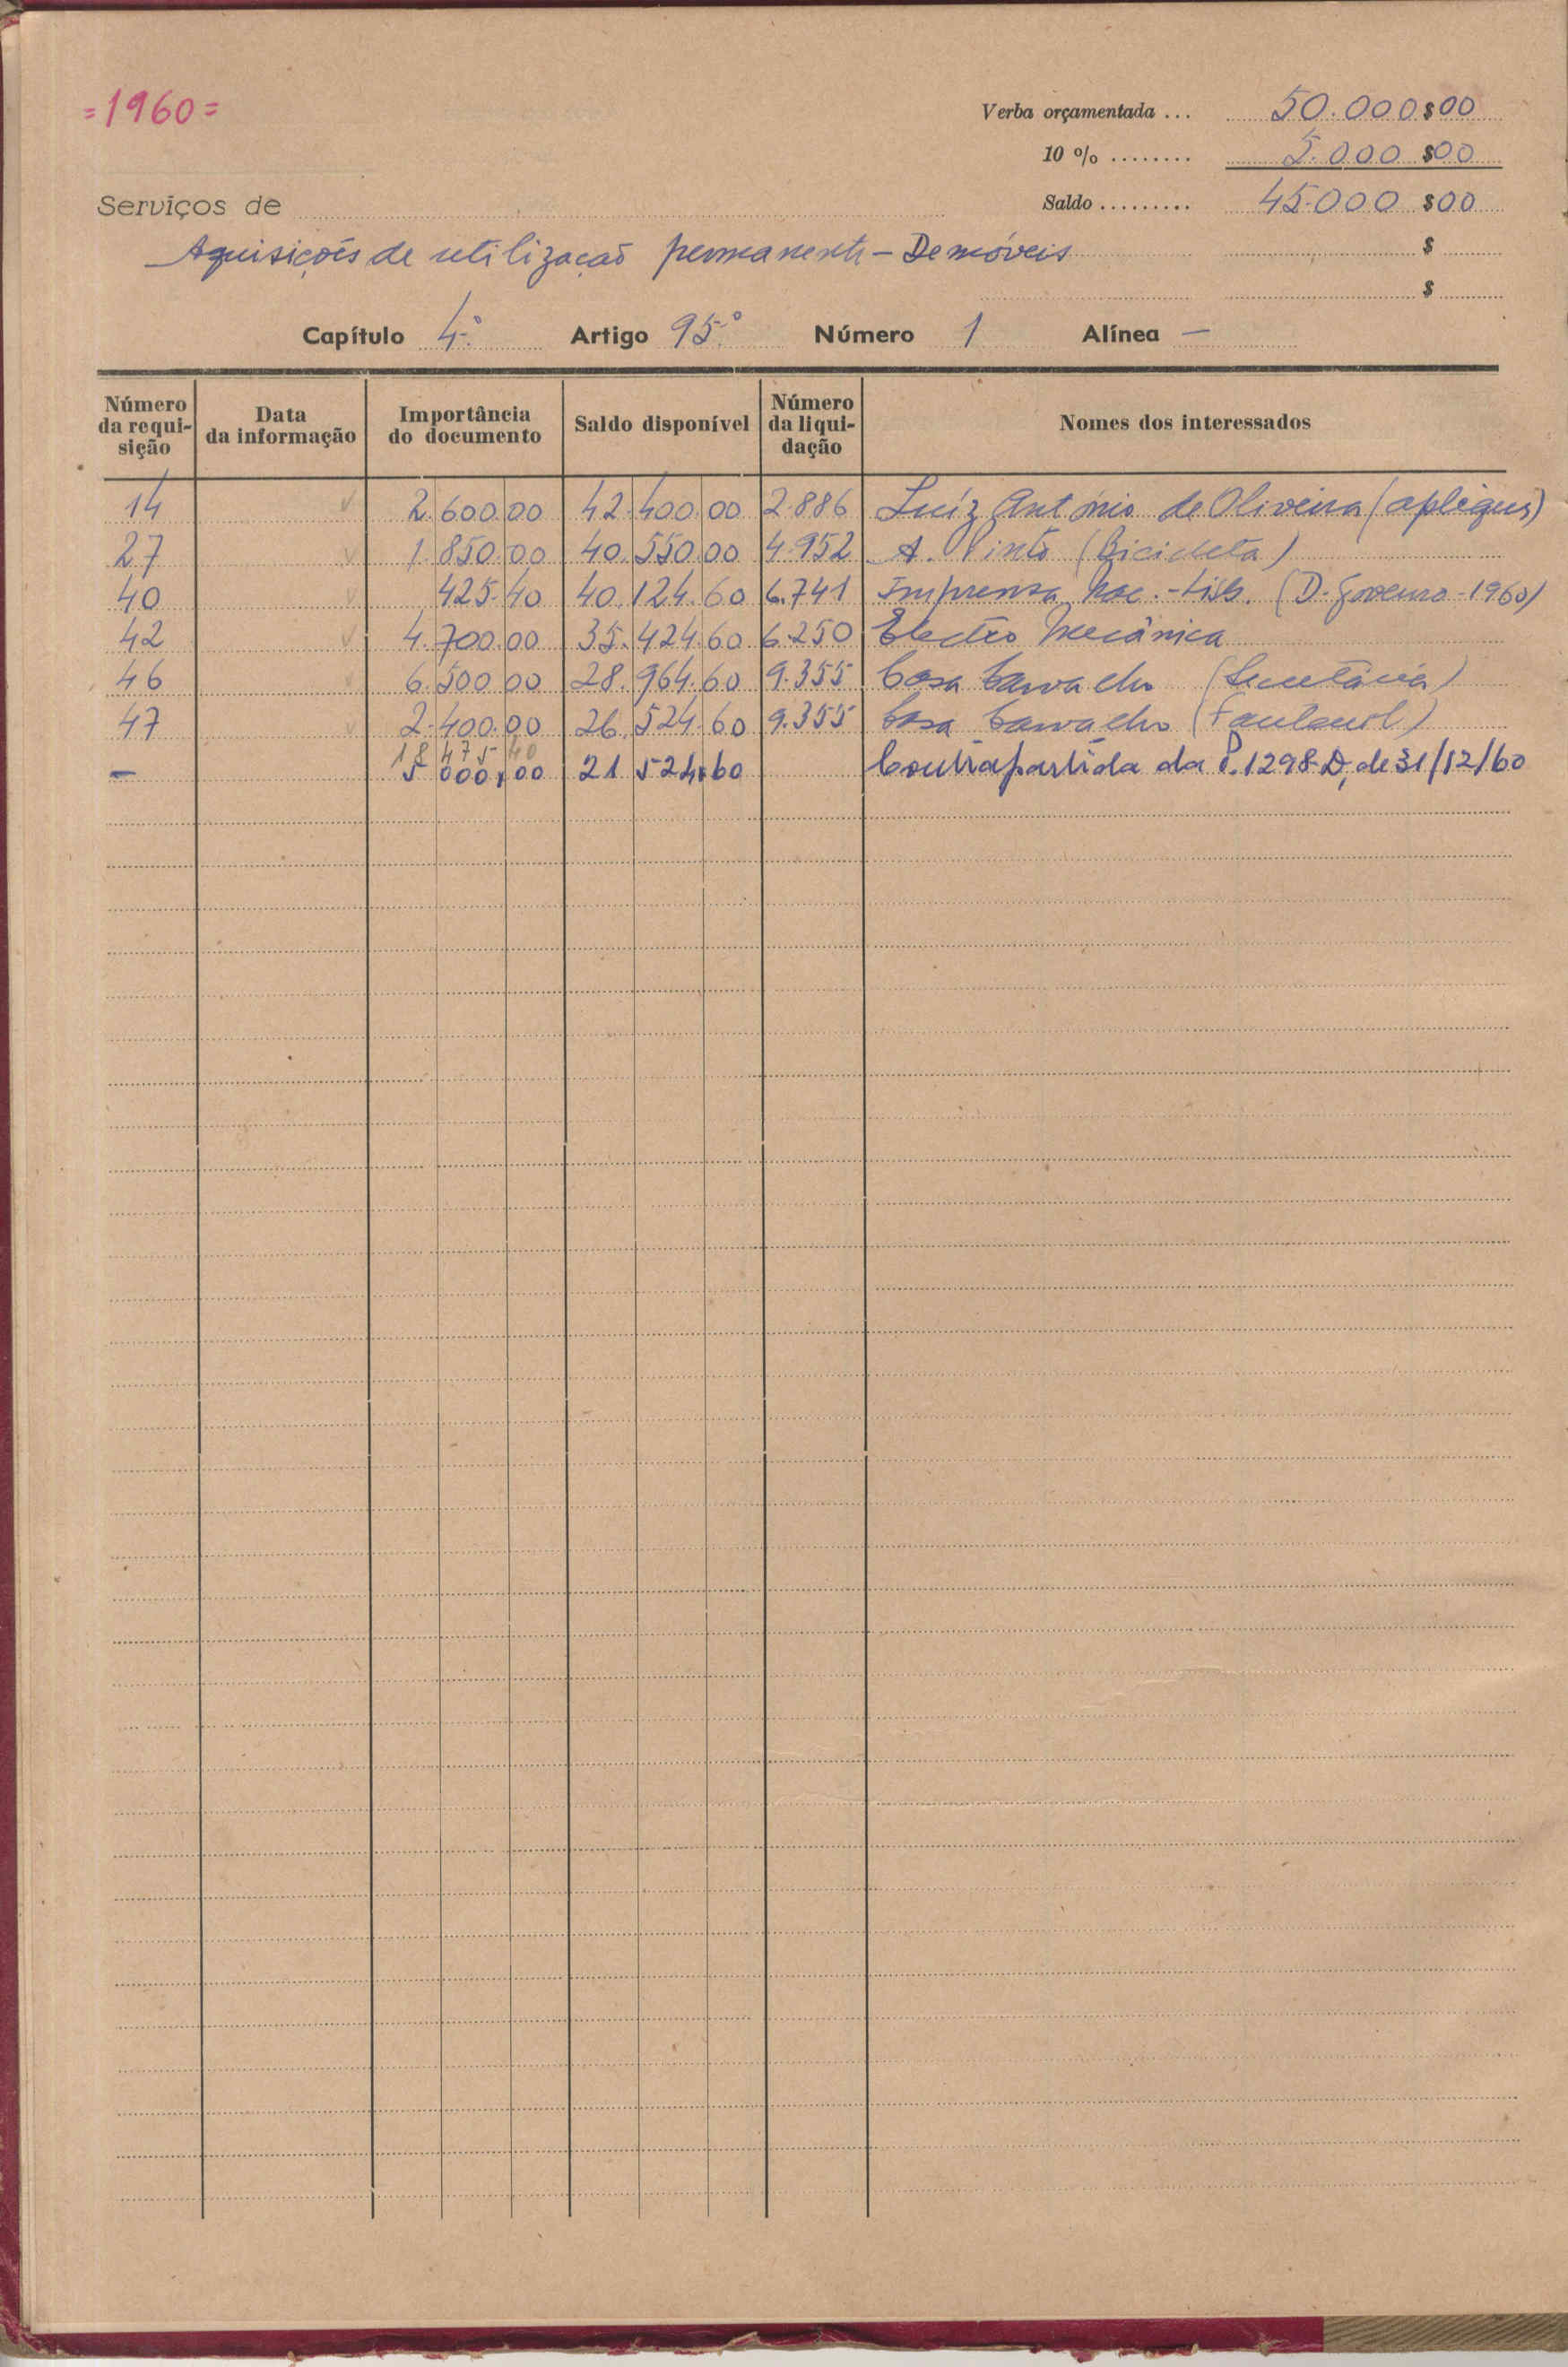 =1960=
Verba orçamentada ... 50.000$00
10 % ........ 5.000$00
Saldo ......... 45.000$00
Serviços de
Aquisições de utilização permanente - De móveis $
$
Capítulo 4.º Artigo 95.º Número 1 Alínea —
Número da requi- sição
Data da informação
Importância do documento
Saldo disponível
Número da liqui- dação
Nomes dos interessados
14 ✓ 2.600.00 42.400.00 2.886 Luíz António de Oliveira (apliques)
27 ✓ 1.850.00 40.550.00 4.952 A. Pinto (Bicicleta)
40 ✓ 425.40 40.124.60 6.741 Imprensa Nac. - Lisb. (D. Governo - 1960)
42 ✓ 4.700.00 35.424.60 6.250 Electro Mecânica
46 6.500.00 28.964.60 9.355 Casa (Secretária)
47 ✓ 2.400.00 26.524.60 9.355 Casa
18 475 40
— 5 000,00 21 524,60 Contrapartida da P. 1298-D, de 31/12/60